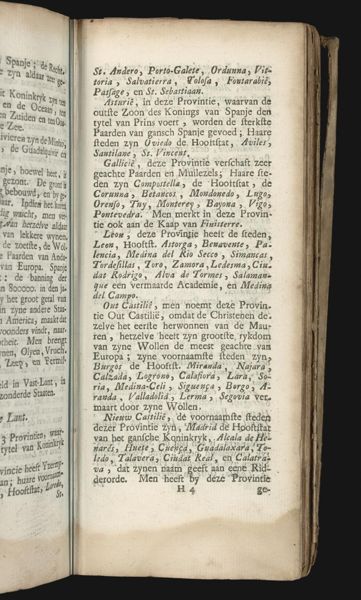 Spanje; de Recht.
e zyn aldaar zee ge-
it Koninkryk zyn ten
en de Ocean, ten
en Zuiden en ten Oos-
e Zee.
ivieren zyn de Minho,
de Guadalquivir en
nje, hoewel heet, is
gezont. De gront is
bebouwd, en by ge-
aar. Indien het lant
dig wacht, men ver-
van herzelve aldaar
van lekkere wynen,
de zoetste, de Wol-
e Paarden van Anda-
van Europa. Spanje
s: de banning der
n 800000. in den ja-
y het groot getal van
in zyne andere Staa-
n America, maakt dat
woonders vindt, naar-
otheit. Men brengt
nen, Olyen, Vrucht.
Leer, en Vermil-
ld in Vast-Lant, in
zonderde Staaten.
te Lant.
3 Provintien, waar-
tytel van Koninkryk
vincie heeft Yzermy-
an; haare voornaam-
Hooftstad, Laredo,
St.
St. Andero, Porto-Galete, Ordunna, Vit-
toria, Salvatierra, Tolosa, Fontarabie,
Passage, en St. Sebastiaan.
Asturië, in deze Provintie, waarvan de
outste Zoon des Konings van Spanje den
tytel van Prins voert, worden de sterkste
Paarden van gansch Spanje gevoed; Haare
steden zyn Oviedo de Hooftstat, Aviles,
Santilane, St. Vincent.
Gallicië, deze Provintie verschaft zeer
geachte Paarden en Muilezels; Haare ste-
den zyn Compostella, de Hooftstat, de
Corunna, Betancos, Mondonedo, Lugo,
Orenso, Tuy, Monterey, Bayona, Vigo,
Pontevedra. Men merkt in deze Provin-
tie ook aan de Kaap van Finisterre.
Léon, deze Provintie heeft de steden,
Leon, Hooftst. Astorga, Benavente, Pa-
lencia, Medina del Rio Secco, Simancas,
Tordesillas, Toro, Zamora, Ledesma, Ciu-
dat Rodrigo, Alva de Tormes, Salaman-
que een vermaarde Academie, en Medina
del Campo.
Out Castilië, men noemt deze Provin-
tie Out Castilië, omdat de Christenen de-
zelve het eerste herwonnen van de Mau-
ren, herzelve heeft zyn grootste, rykdom
van zyne Wollen de meest geachte van
Europa; zyne voornaamste steden zyn,
Burgos de Hooftst. Miranda, Najara,
Calzada, Logrono, Calahora, Lara, So-
ria, Medina-Celi, Siguença, Borgo, A-
randa, Valladolid, Lerma, Segovia ver-
maart door zyne Wollen.
Nieuw Castilië, de voornaamste steden
dezer Provintie zyn, Madrid de Hooftstat
van het gansche Koninkryk, Alcala de He-
narés, Huete, Cuença, Guadalaxara, To-
ledo, Talavera, Ciudat Real, en Calatra-
va, dat zynen naam geeft aan eene Rid-
derorde. Men heeft by deze Provintie
H 4 ge-